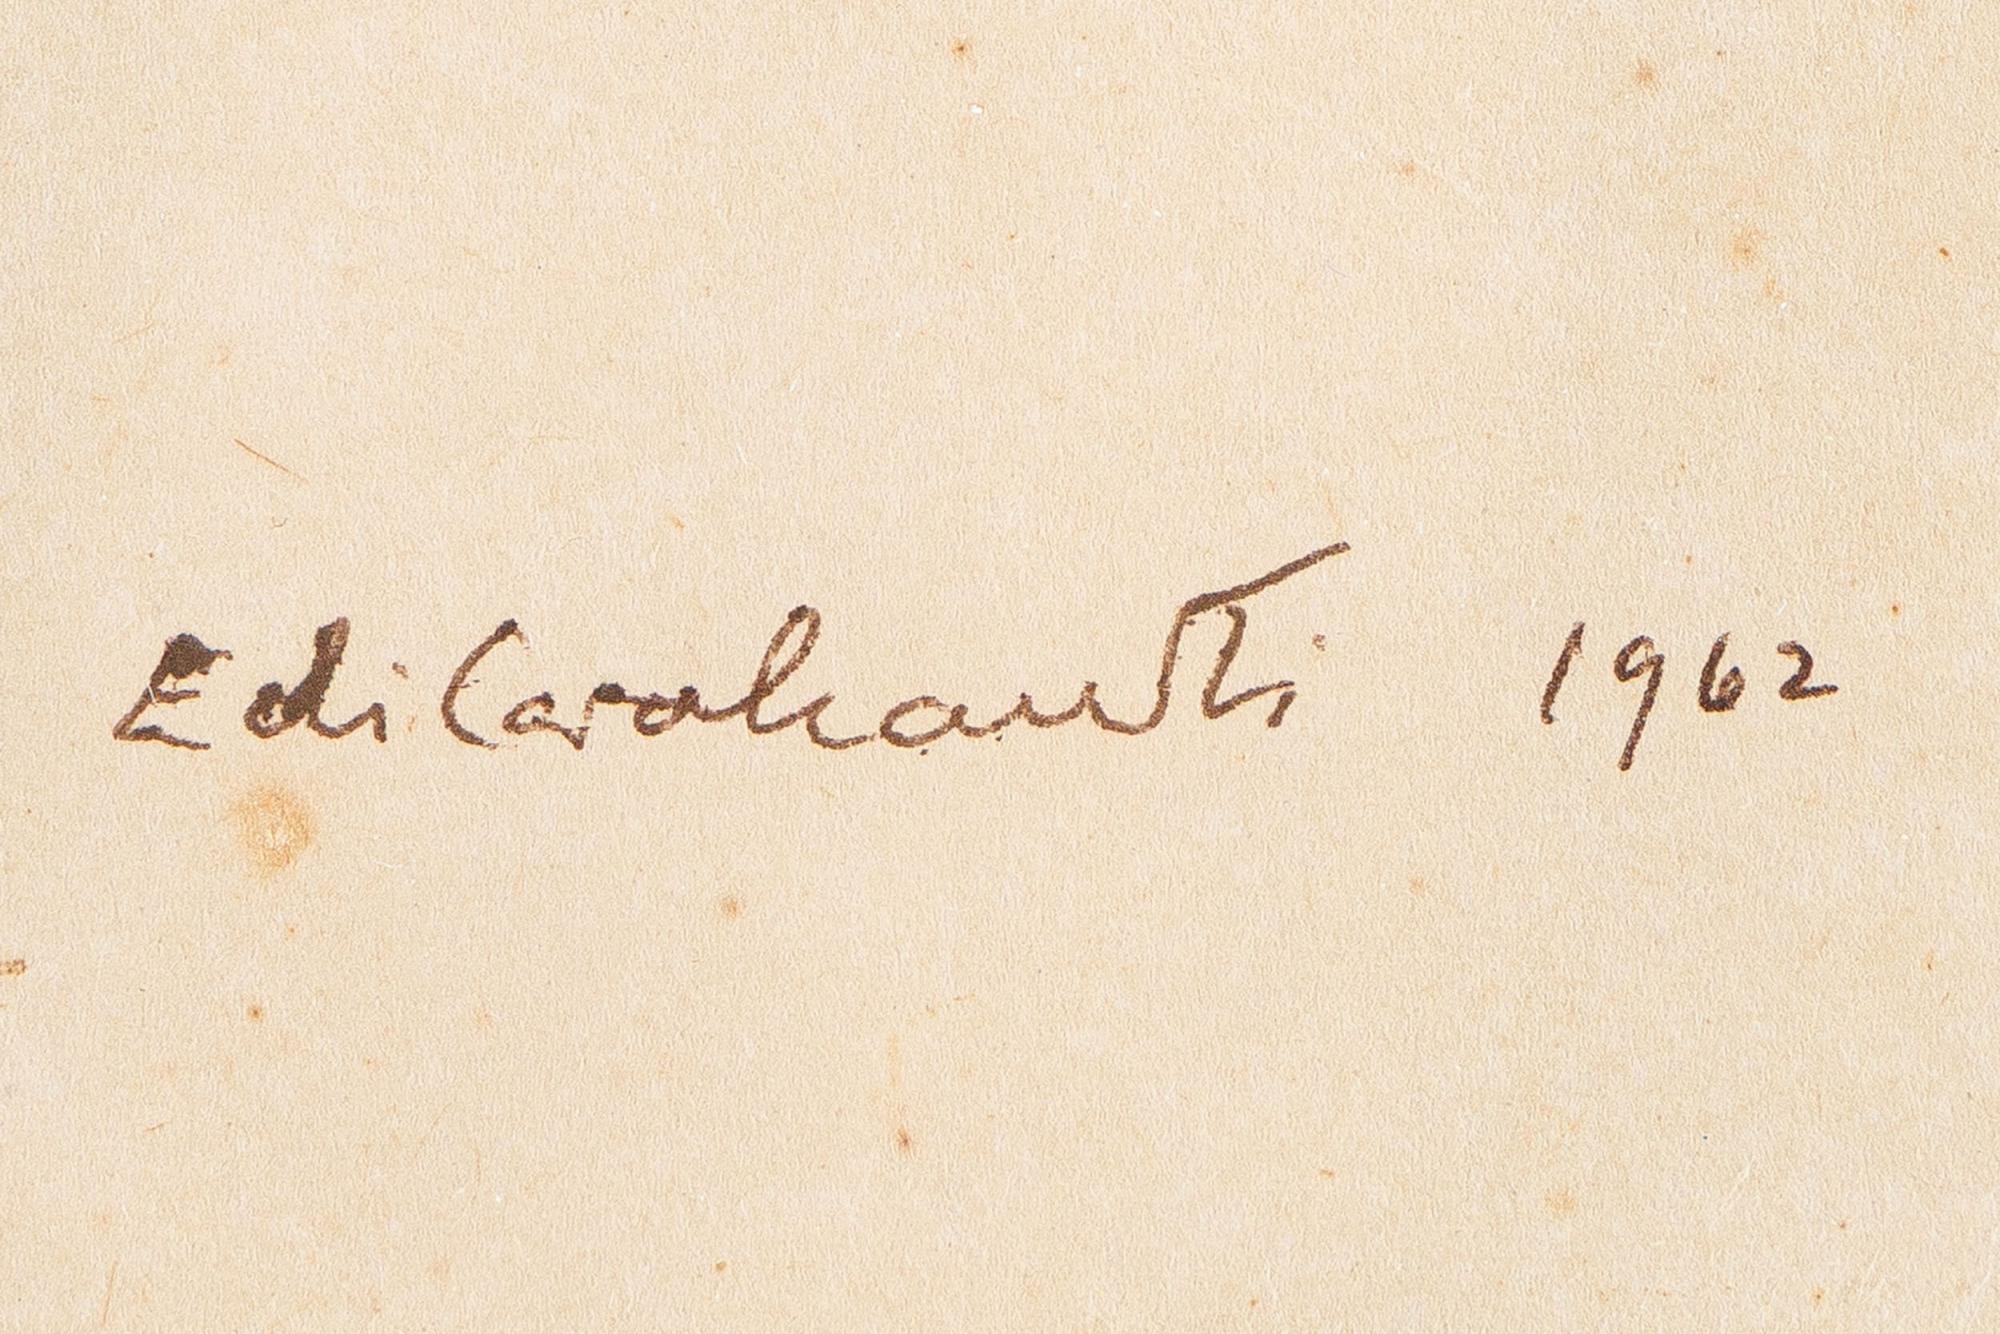 Edi Carahanti 1962